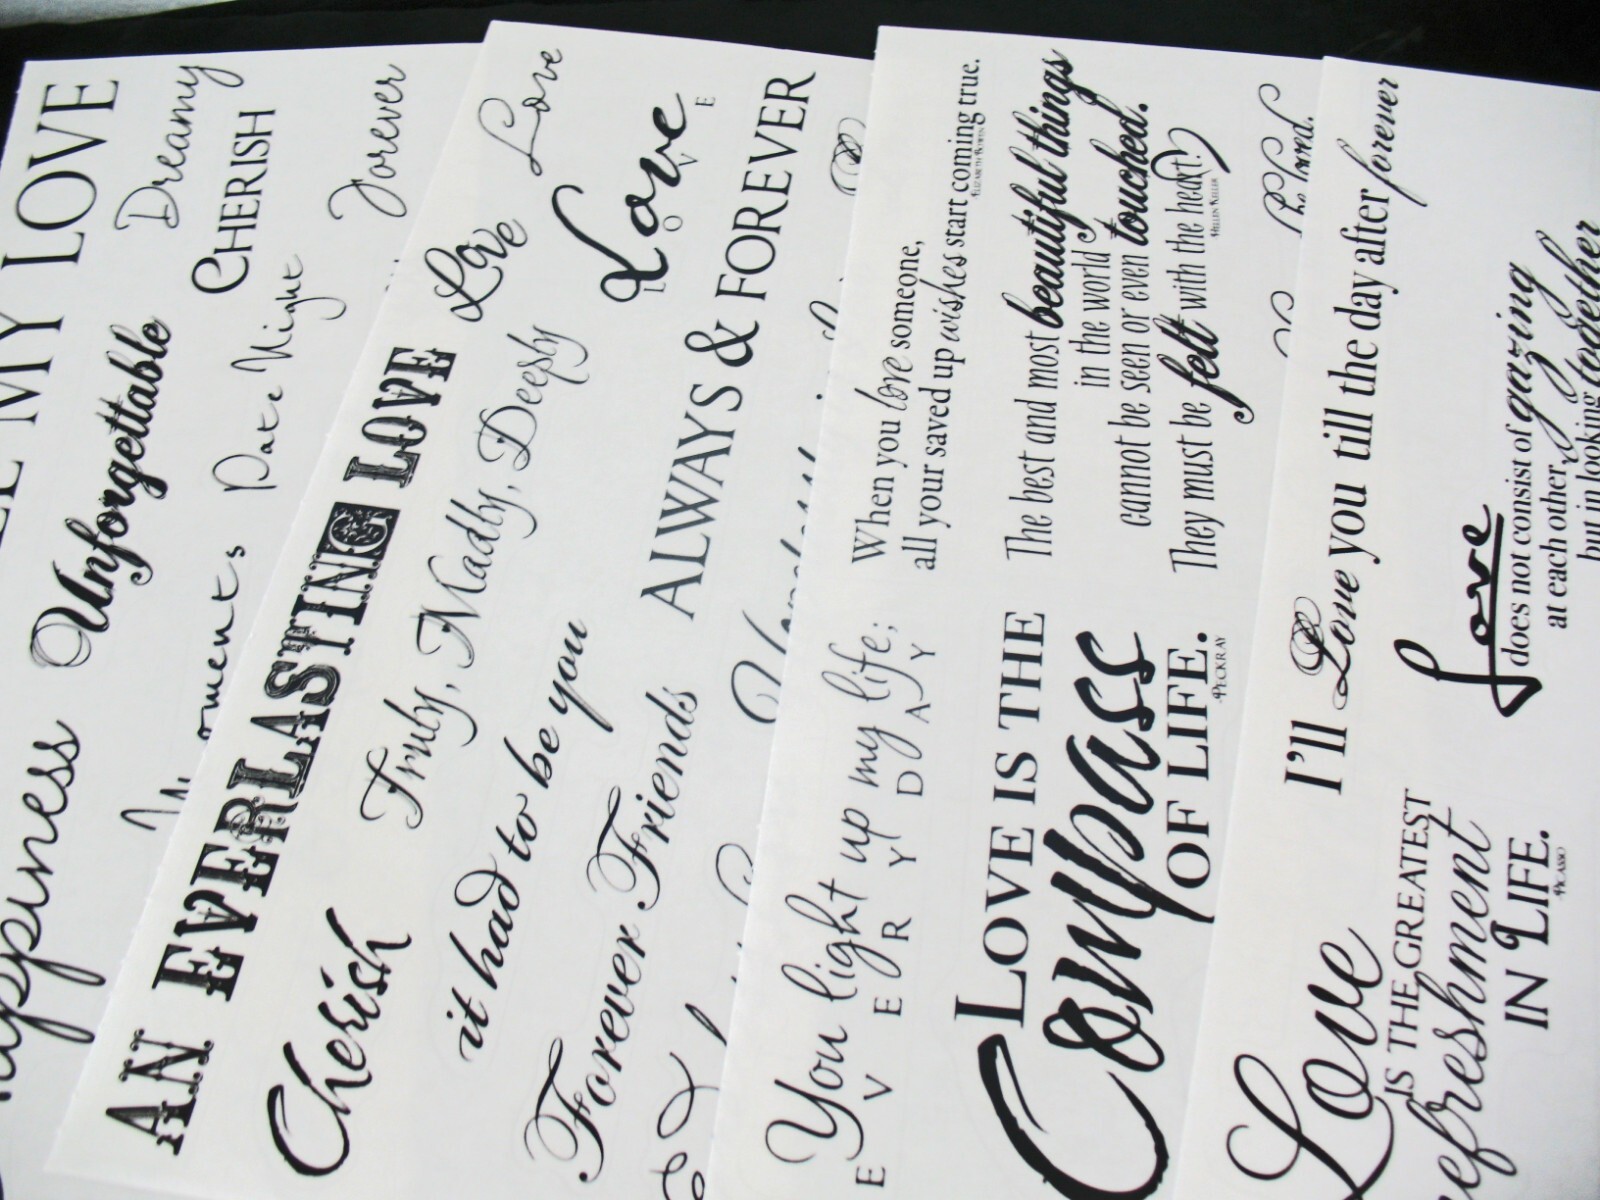 MY LOVE
Dreamy
CHERISH
Forever
Unforgettable
Date Night
Happiness
AN EVERLASTING LOVE
Love
Love
Love
L O V E
Truly, Madly, Deeply
Cherish
it had to be you
ALWAYS & FOREVER
Forever Friends
When you love someone,
all your saved up wishes start coming true.
ELIZABETH BOWEN
The best and most beautiful things
in the world
cannot be seen or even touched.
They must be felt with the heart!
HELLEN KELLER
You light up my life;
E V E R Y D A Y
LOVE IS THE
Compass
OF LIFE.
PECKRAY
I'll Love you till the day after forever
Love
does not consist of gazing
at each other,
but in looking together
Love
IS THE GREATEST
refreshment
IN LIFE.
PICASSO